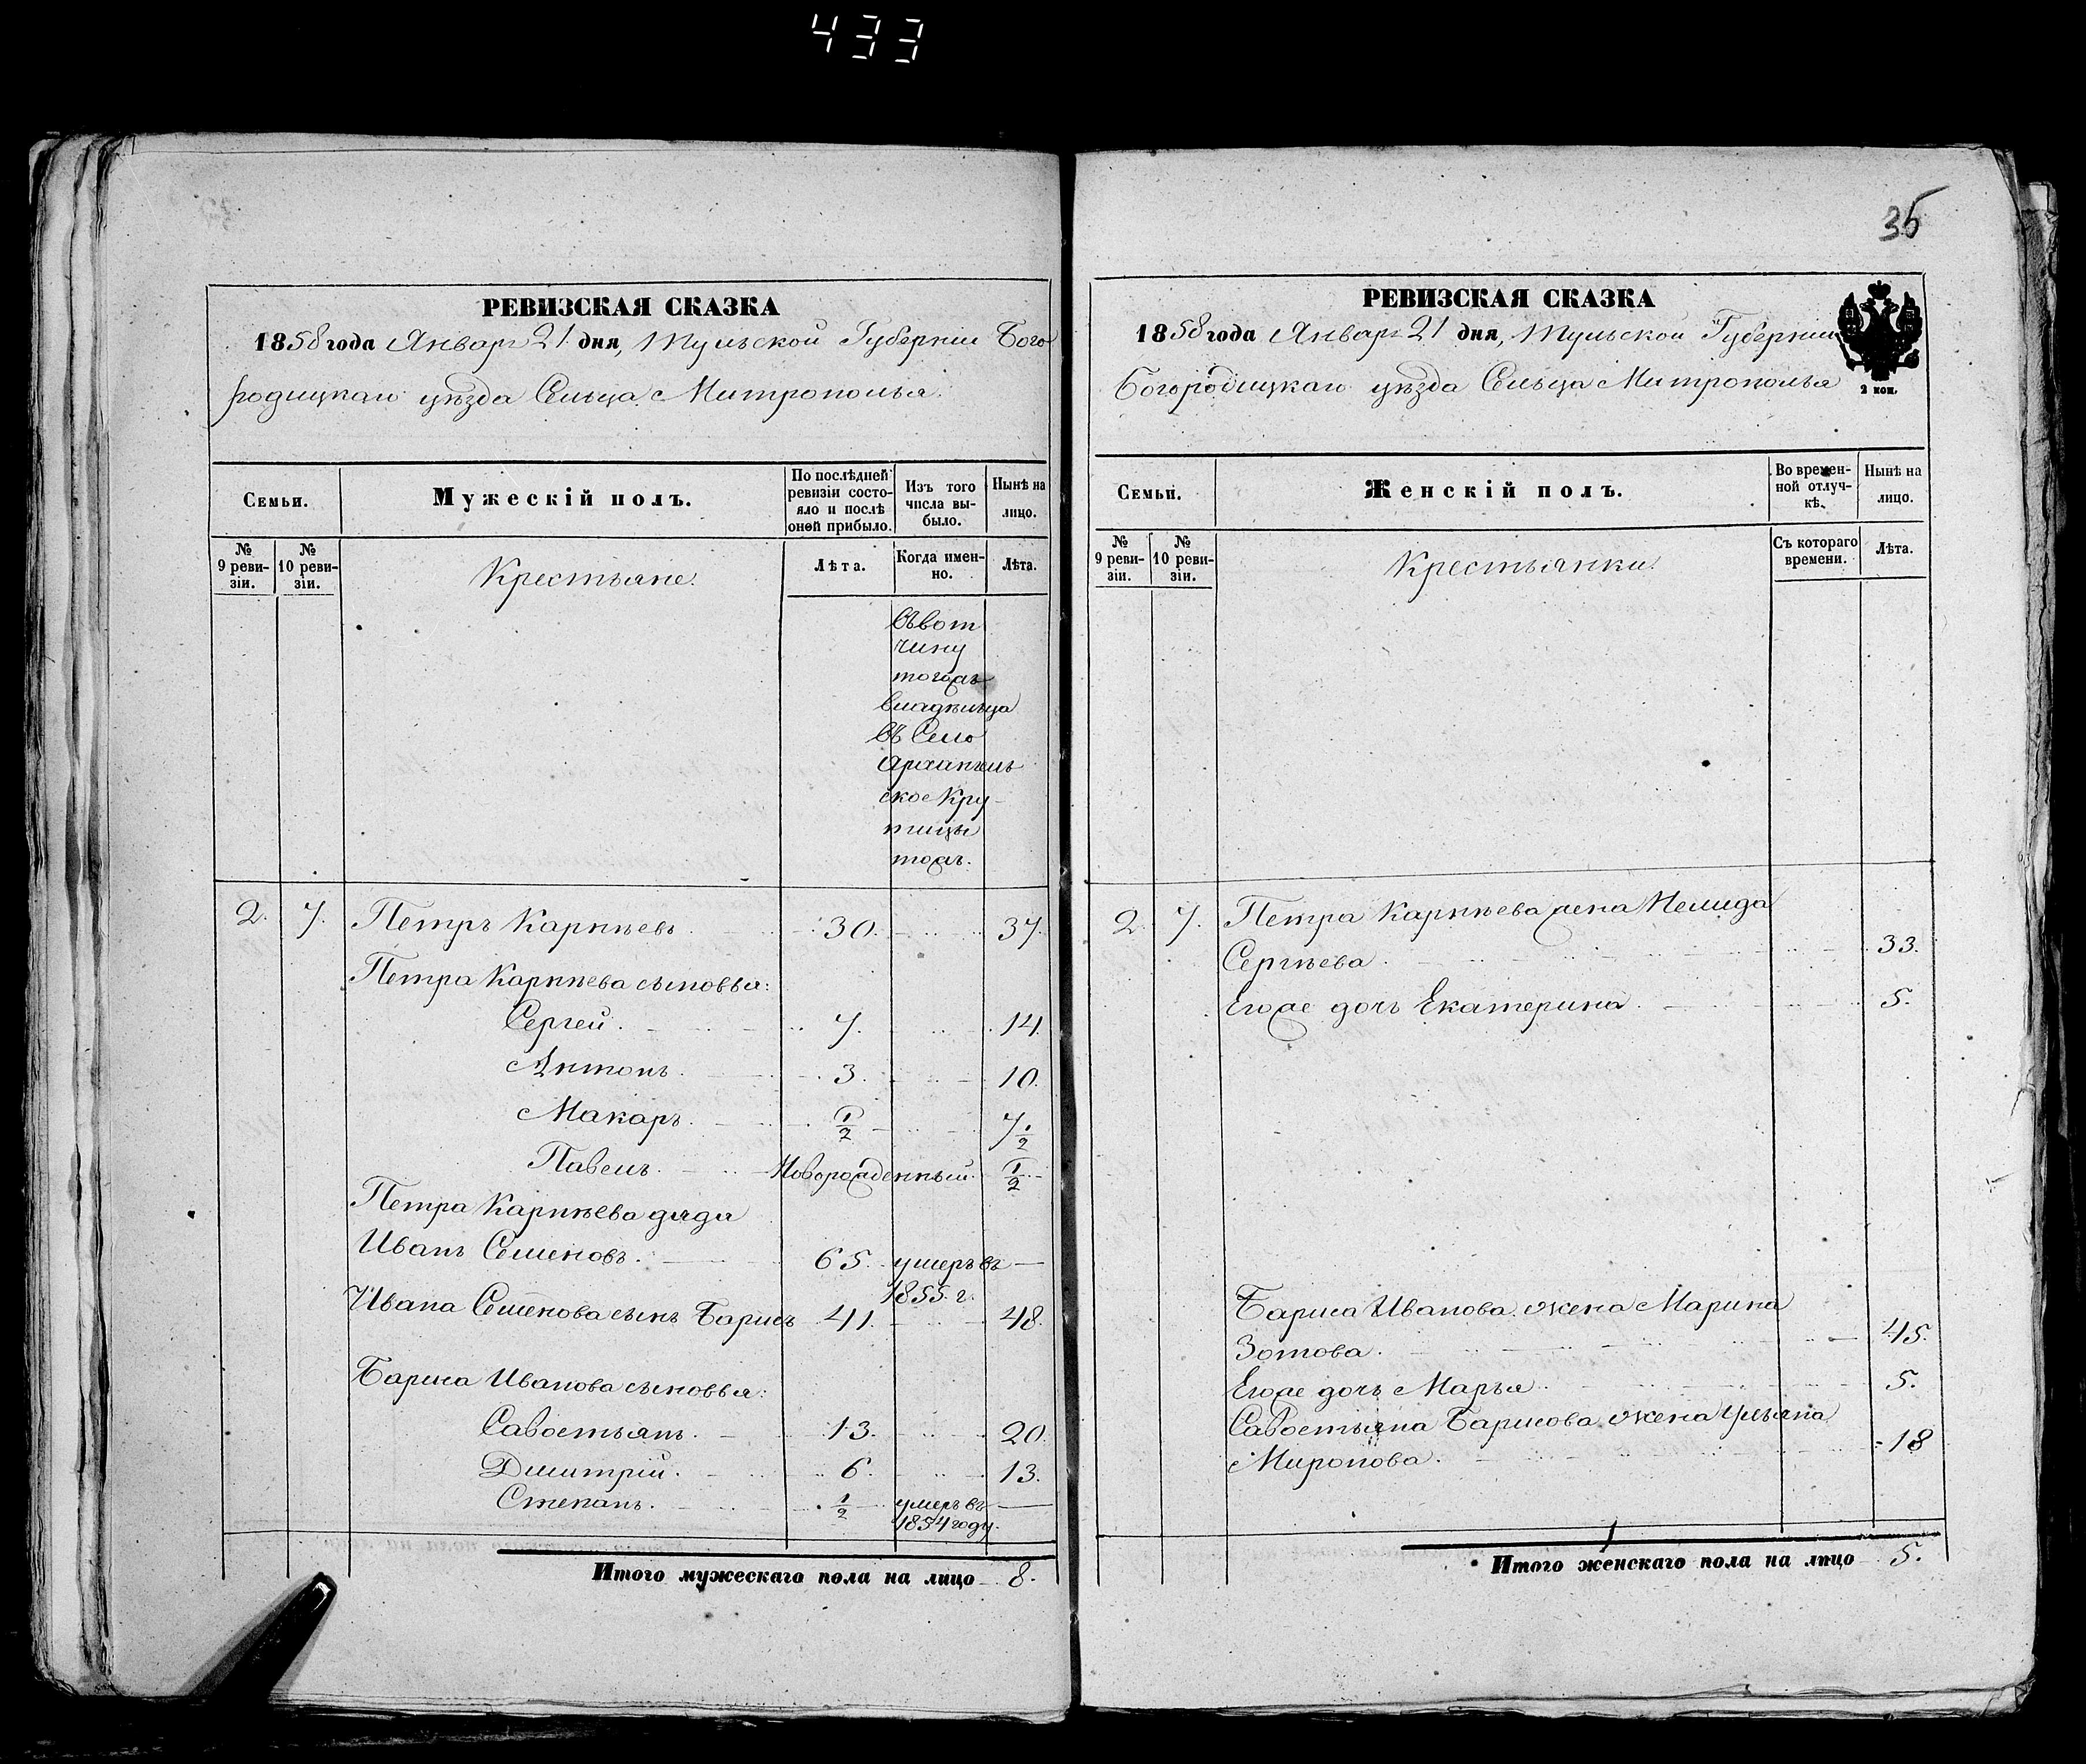 433
35
РЕВИЗСКАЯ СКАЗКА
1858 года Январ 21 дня, Тульской Губерніи Бого
родицкаго уѣзда Сельца Митрополья
Семьи.
Мужескій полъ.
По послѣдней ревизіи состо-
яло и послѣ
оной прибыло.
Изъ того
числа вы-
было.
Нынѣ на
лицо.
№ 9 реви-
зіи.
№ 10 реви-
зіи.
Крестьяне
Лѣта.
Когда имен-
но.
Лѣта.
въ вот
чину
тогожъ
владѣльца
въ Село
Архангель
ское Кру
тицы
тожъ.
2. 7. Петръ Карпѣевъ 30. 37.
Петра Карпѣева сыновья:
Сергей. 7. 14.
Антонъ. 3. 10.
Макаръ. 1/2 7 1/2
Павелъ. Новорожденный. 1/2
Петра Карпѣева дядя
Иванъ Семеновъ. 65. умеръ въ
1855. г.
Ивана Семенова сынъ Барисъ 41. 48.
Бариса Иванова сыновья:
Савостьянъ. 13. 20.
Дмитрій. 6. 13.
Степанъ. 1/2 умеръ въ
1854 году.
Итого мужескаго пола на лицо 8.
РЕВИЗСКАЯ СКАЗКА
1858 года Январ 21 дня, Тульской Губерніи
Богородицкаго уѣзда Сельца Митрополья
2 коп.
Семьи.
Женскій полъ.
Во времен-
ной отлуч-
кѣ.
Нынѣ на
лицо.
№ 9 реви-
зіи.
№ 10 реви-
зіи.
Крестьянки.
Съ котораго
времени.
Лѣта.
2. 7. Петра Карпѣева жена Мелида
Сергѣева. 33.
Егоже дочь Екатерина. 5.
Бариса Иванова жена Марина
Зотова. 45.
Егоже дочь Марья 5.
Савостьяна Барисова жена Ульяна
Миронова. 18
Итого женскаго пола на лицо 5.